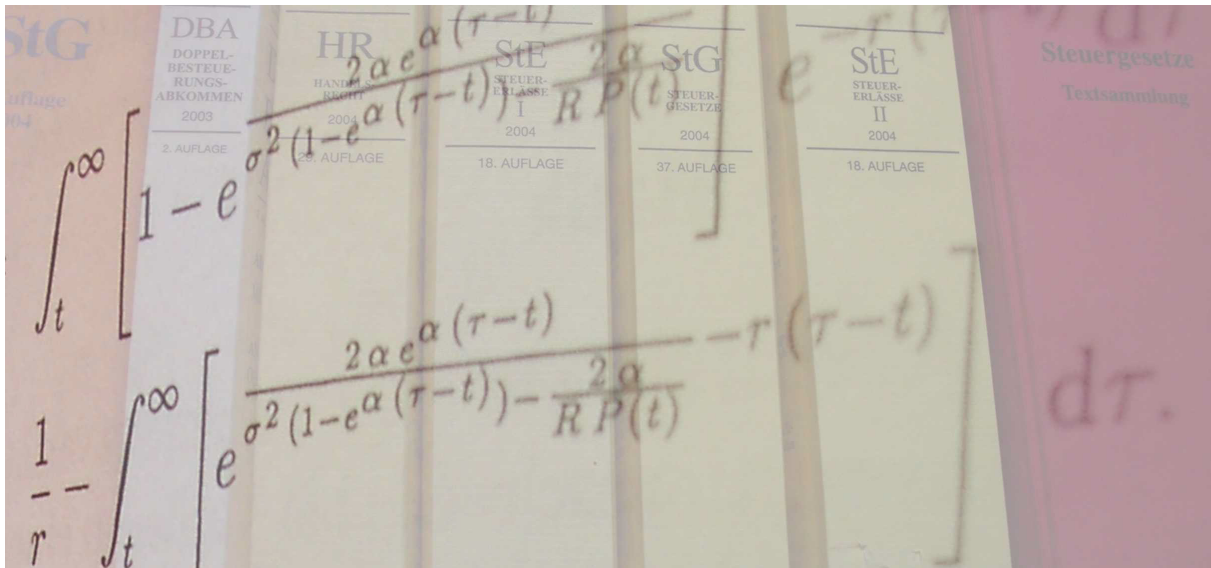 StG
uflage
DBA
DOPPEL-
BESTEUE-
RUNGS-
ABKOMMEN
2003
2. AUFLAGE
HR
HANDELS-
RECHT
2004
AUFLAGE
StE
STEUER-
ERLÄSSE
I
2004
18. AUFLAGE
StG
STEUER-
GESETZE
2004
37. AUFLAGE
StE
STEUER-
ERLÄSSE
II
2004
18. AUFLAGE
Steuergesetze
Textsammlung
∫_t^∞ [1 − e^{2 α e^{α (τ−t)} / (σ^2 (1−e^{α (τ−t)}) − 2 α / (R P(t)))}] e^{−r (τ−t)} dτ
1/r − ∫_t^∞ [e^{2 α e^{α (τ−t)} / (σ^2 (1−e^{α (τ−t)}) − 2 α / (R P(t))) − r (τ−t)}] dτ.